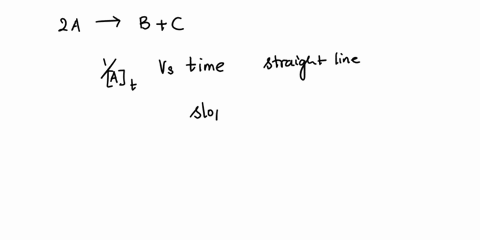 2A → B + C
1/[A]t Vs time straight line